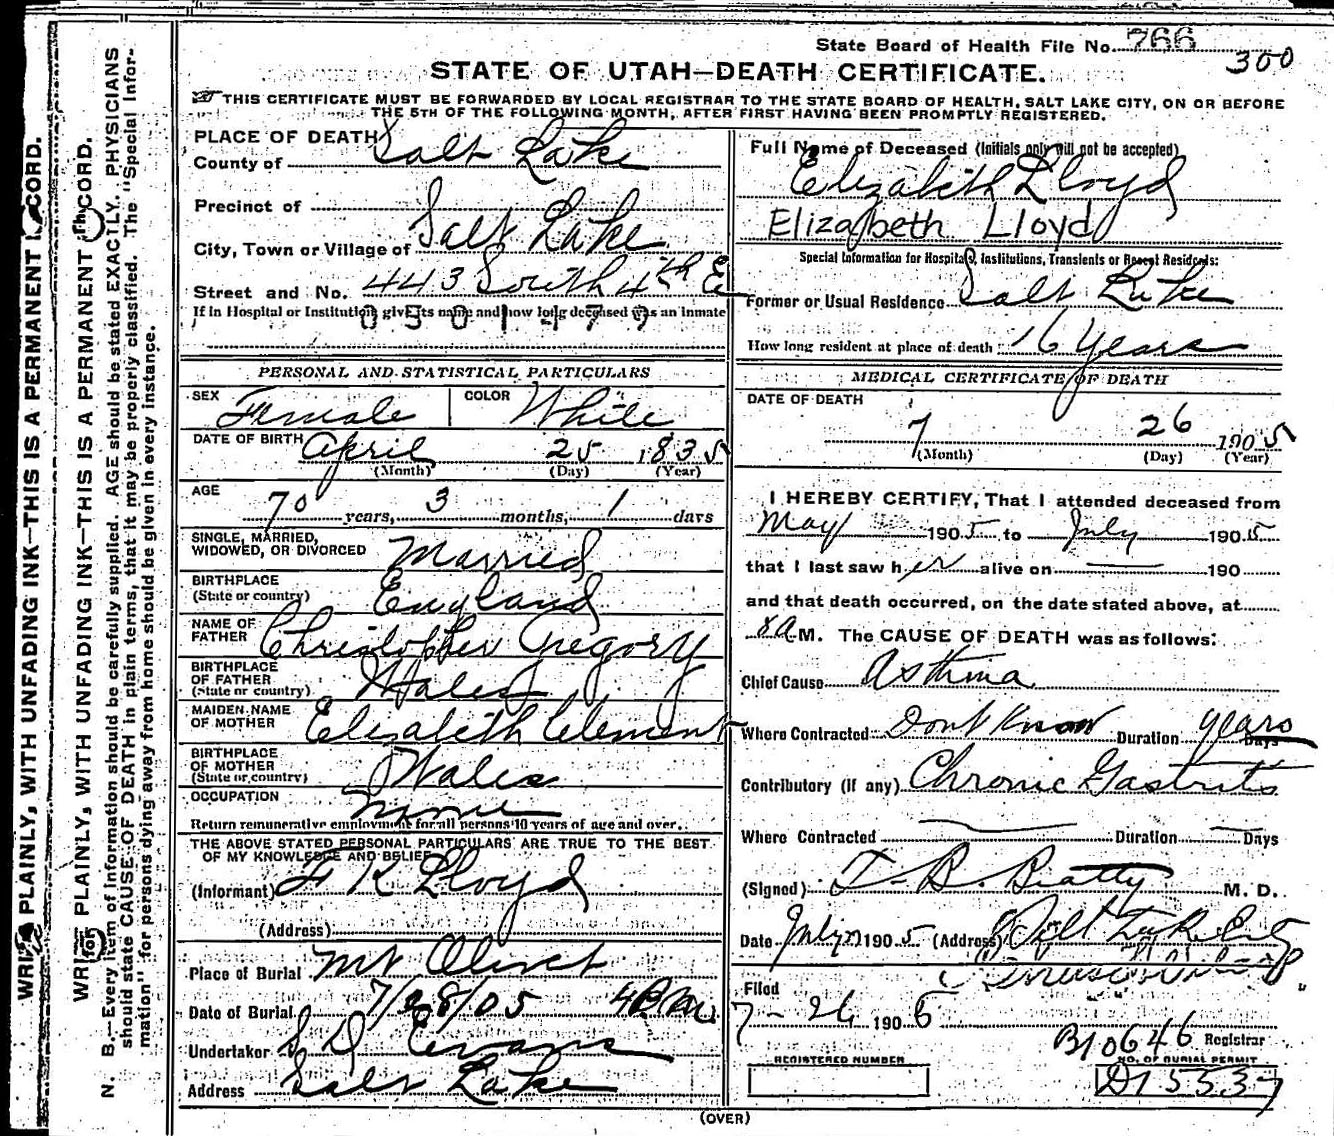 State Board of Health File No. 766
300
STATE OF UTAH—DEATH CERTIFICATE.
THIS CERTIFICATE MUST BE FORWARDED BY LOCAL REGISTRAR TO THE STATE BOARD OF HEALTH, SALT LAKE CITY, ON OR BEFORE
THE 5TH OF THE FOLLOWING MONTH, AFTER FIRST HAVING BEEN PROMPTLY REGISTERED.
PLACE OF DEATH
County of Salt Lake
Precinct of
City, Town or Village of Salt Lake
Street and No. 443 South 4th E
If in Hospital or Institution give its name and how long deceased was an inmate
0301479
PERSONAL AND STATISTICAL PARTICULARS
SEX Female COLOR White
DATE OF BIRTH April 25 1835
(Month) (Day) (Year)
AGE
70 years, 3 months, 1 days
SINGLE, MARRIED,
WIDOWED, OR DIVORCED Married
BIRTHPLACE
(State or country) England
NAME OF
FATHER Christopher Gregory
BIRTHPLACE
OF FATHER
(State or country) Wales
MAIDEN NAME
OF MOTHER Elizabeth Clement
BIRTHPLACE
OF MOTHER
(State or country) Wales
OCCUPATION None
Return remunerative employment for all persons 10 years of age and over.
THE ABOVE STATED PERSONAL PARTICULARS ARE TRUE TO THE BEST
OF MY KNOWLEDGE AND BELIEF
(Informant) F K Lloyd
(Address)
Place of Burial Mt Olivet
Date of Burial 7/28/05 4 P.M.
Undertaker S D Evans
Address Salt Lake
Full Name of Deceased (Initials only will not be accepted)
Elizabeth Lloyd
Elizabeth Lloyd
Special Information for Hospitals, Institutions, Transients or Recent Residents:
Former or Usual Residence Salt Lake
How long resident at place of death 16 Years
MEDICAL CERTIFICATE OF DEATH
DATE OF DEATH
7 26 1905
(Month) (Day) (Year)
I HEREBY CERTIFY, That I attended deceased from
May 1905 to July 1905
that I last saw her alive on — 190
and that death occurred, on the date stated above, at
8 A M. The CAUSE OF DEATH was as follows:
Chief Cause Asthma
Where Contracted Dont Know Duration years Days
Contributory (if any) Chronic Gastritis
Where Contracted — Duration — Days
(Signed) T. B. Beatty M. D.
Date July 1905 (Address) Salt Lake City
Filed
7-26 1905
Registrar
B10646
REGISTERED NUMBER
NO. OF BURIAL PERMIT
D15537
(OVER)
WRITE PLAINLY, WITH UNFADING INK—THIS IS A PERMANENT RECORD.
WRITE PLAINLY, WITH UNFADING INK—THIS IS A PERMANENT RECORD.
N. B.—Every item of information should be carefully supplied. AGE should be stated EXACTLY. PHYSICIANS
should state CAUSE OF DEATH in plain terms, that it may be properly classified. The "Special Infor-
mation" for persons dying away from home should be given in every instance.